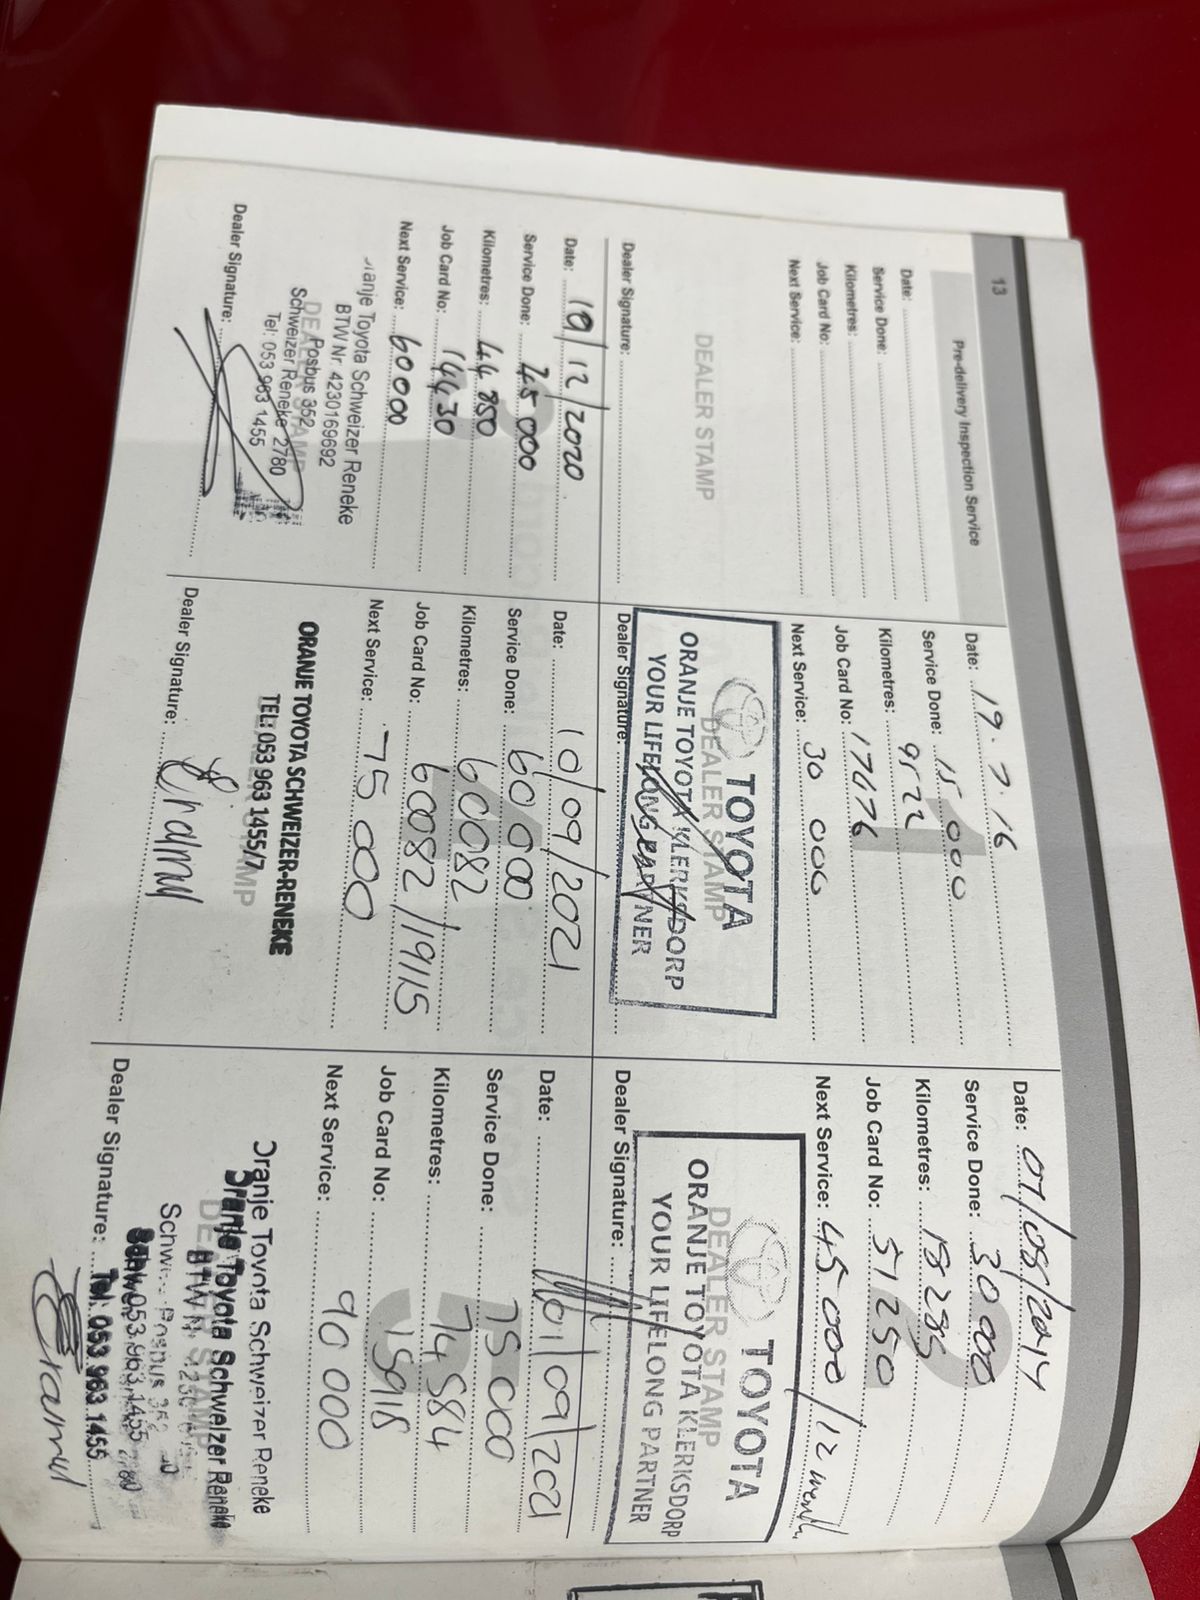 13
Pre-delivery Inspection Service
Date:
Service Done:
Kilometres:
Job Card No:
Next Service:
DEALER STAMP
Dealer Signature:
1
Date: 19.7.16
Service Done: 15 000
Kilometres: 9522
Job Card No: 17676
Next Service: 30 000
DEALER STAMP
TOYOTA
ORANJE TOYOTA KLERKSDORP
YOUR LIFELONG PARTNER
Dealer Signature:
2
Date: 07/08/2017
Service Done: 30 000
Kilometres: 18 285
Job Card No: 51250
Next Service: 45 000/12
DEALER STAMP
TOYOTA
ORANJE TOYOTA KLERKSDORP
YOUR LIFELONG PARTNER
Dealer Signature:
Date: 10/12/2020
Service Done: 45 000
Kilometres: 44 850
Job Card No: 14430
Next Service: 60 000
Oranje Toyota Schweizer Reneke
BTW Nr. 4230169692
DEALER STAMP
Posbus 352
Schweizer Reneke 2780
Tel: 053 963 1455
Dealer Signature:
4
Date: 10/09/2021
Service Done: 60 000
Kilometres: 60082
Job Card No: 60082/19115
Next Service: 75 000
ORANJE TOYOTA SCHWEIZER-RENEKE
TEL: 053 963 1455/7
Dealer Signature:
5
Date: /09/2021
Service Done: 75 000
Kilometres: 74 584
Job Card No: 15918
Next Service: 90 000
Oranje Toyota Schweizer Reneke
Oranje Toyota Schweizer Reneke
DEALER STAMP
Tel: 053 963 1455
Dealer Signature: